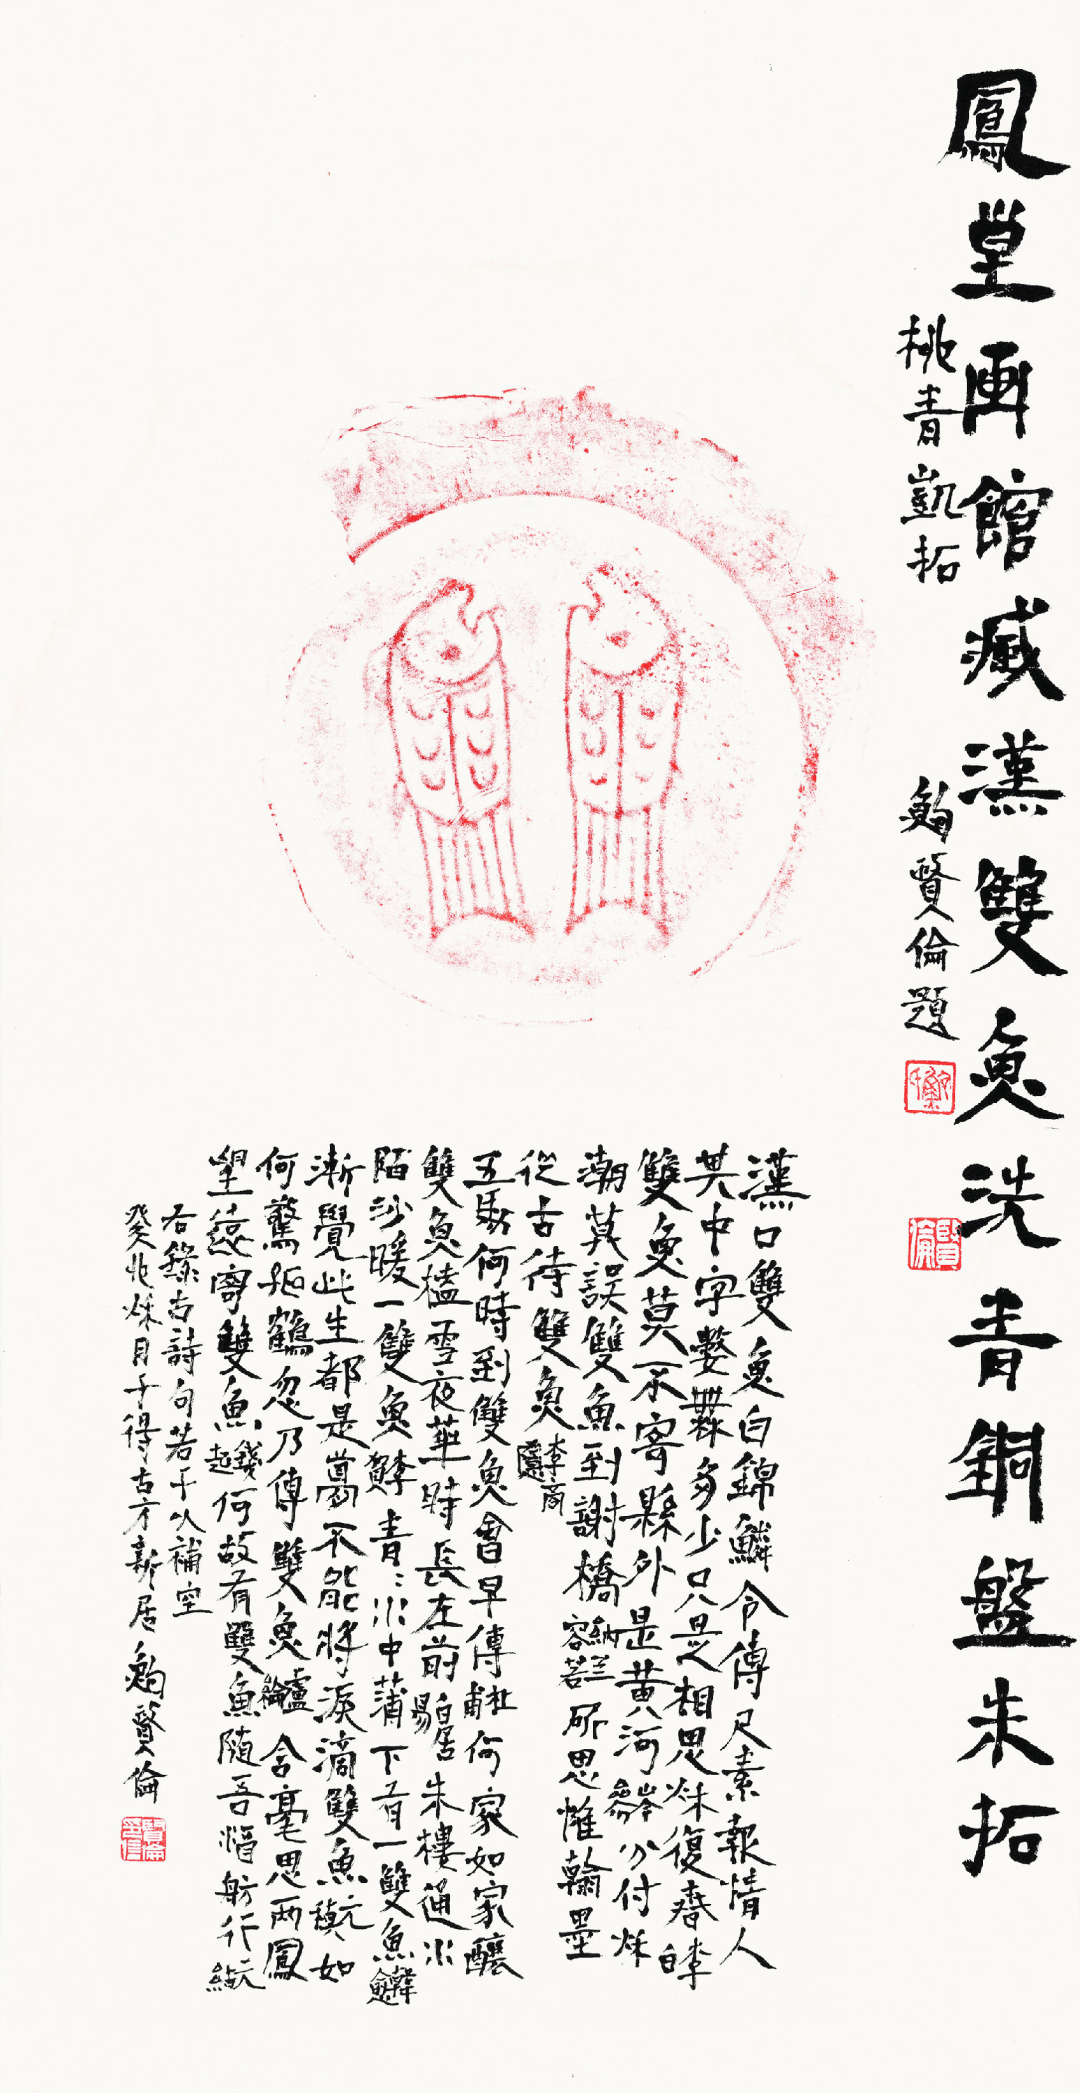 鳳皇画館臧漢雙魚洗青銅盤朱拓
桃青凱拓 鮑賢倫題
賢倫
漢口雙魚白錦鱗令傳尺素報情人
其中字數無多少只是相思秋復春李白
雙魚莫不寄縣外是黃河岑參分付秋
潮莫誤雙魚到謝橋納蘭容若所思惟翰墨
從古待雙魚李商隱
五馬何時到雙魚會早傳杜甫何家如家釀
雙魚榼雪夜華時長在前白居易朱樓通水
陌沙暖一雙魚李賀青〻水中蒲下有一雙魚韓愈
漸覺此生都是夢不能將淚滴雙魚元稹如
何驚孤鶴忽乃傳雙魚盧綸含毫思兩鳳
望遠寄雙魚錢起何故有雙魚隨吾酒舫行元結
右錄古詩句若干以補空
癸卯秋月于得古方新居鮑賢倫
賢倫印信